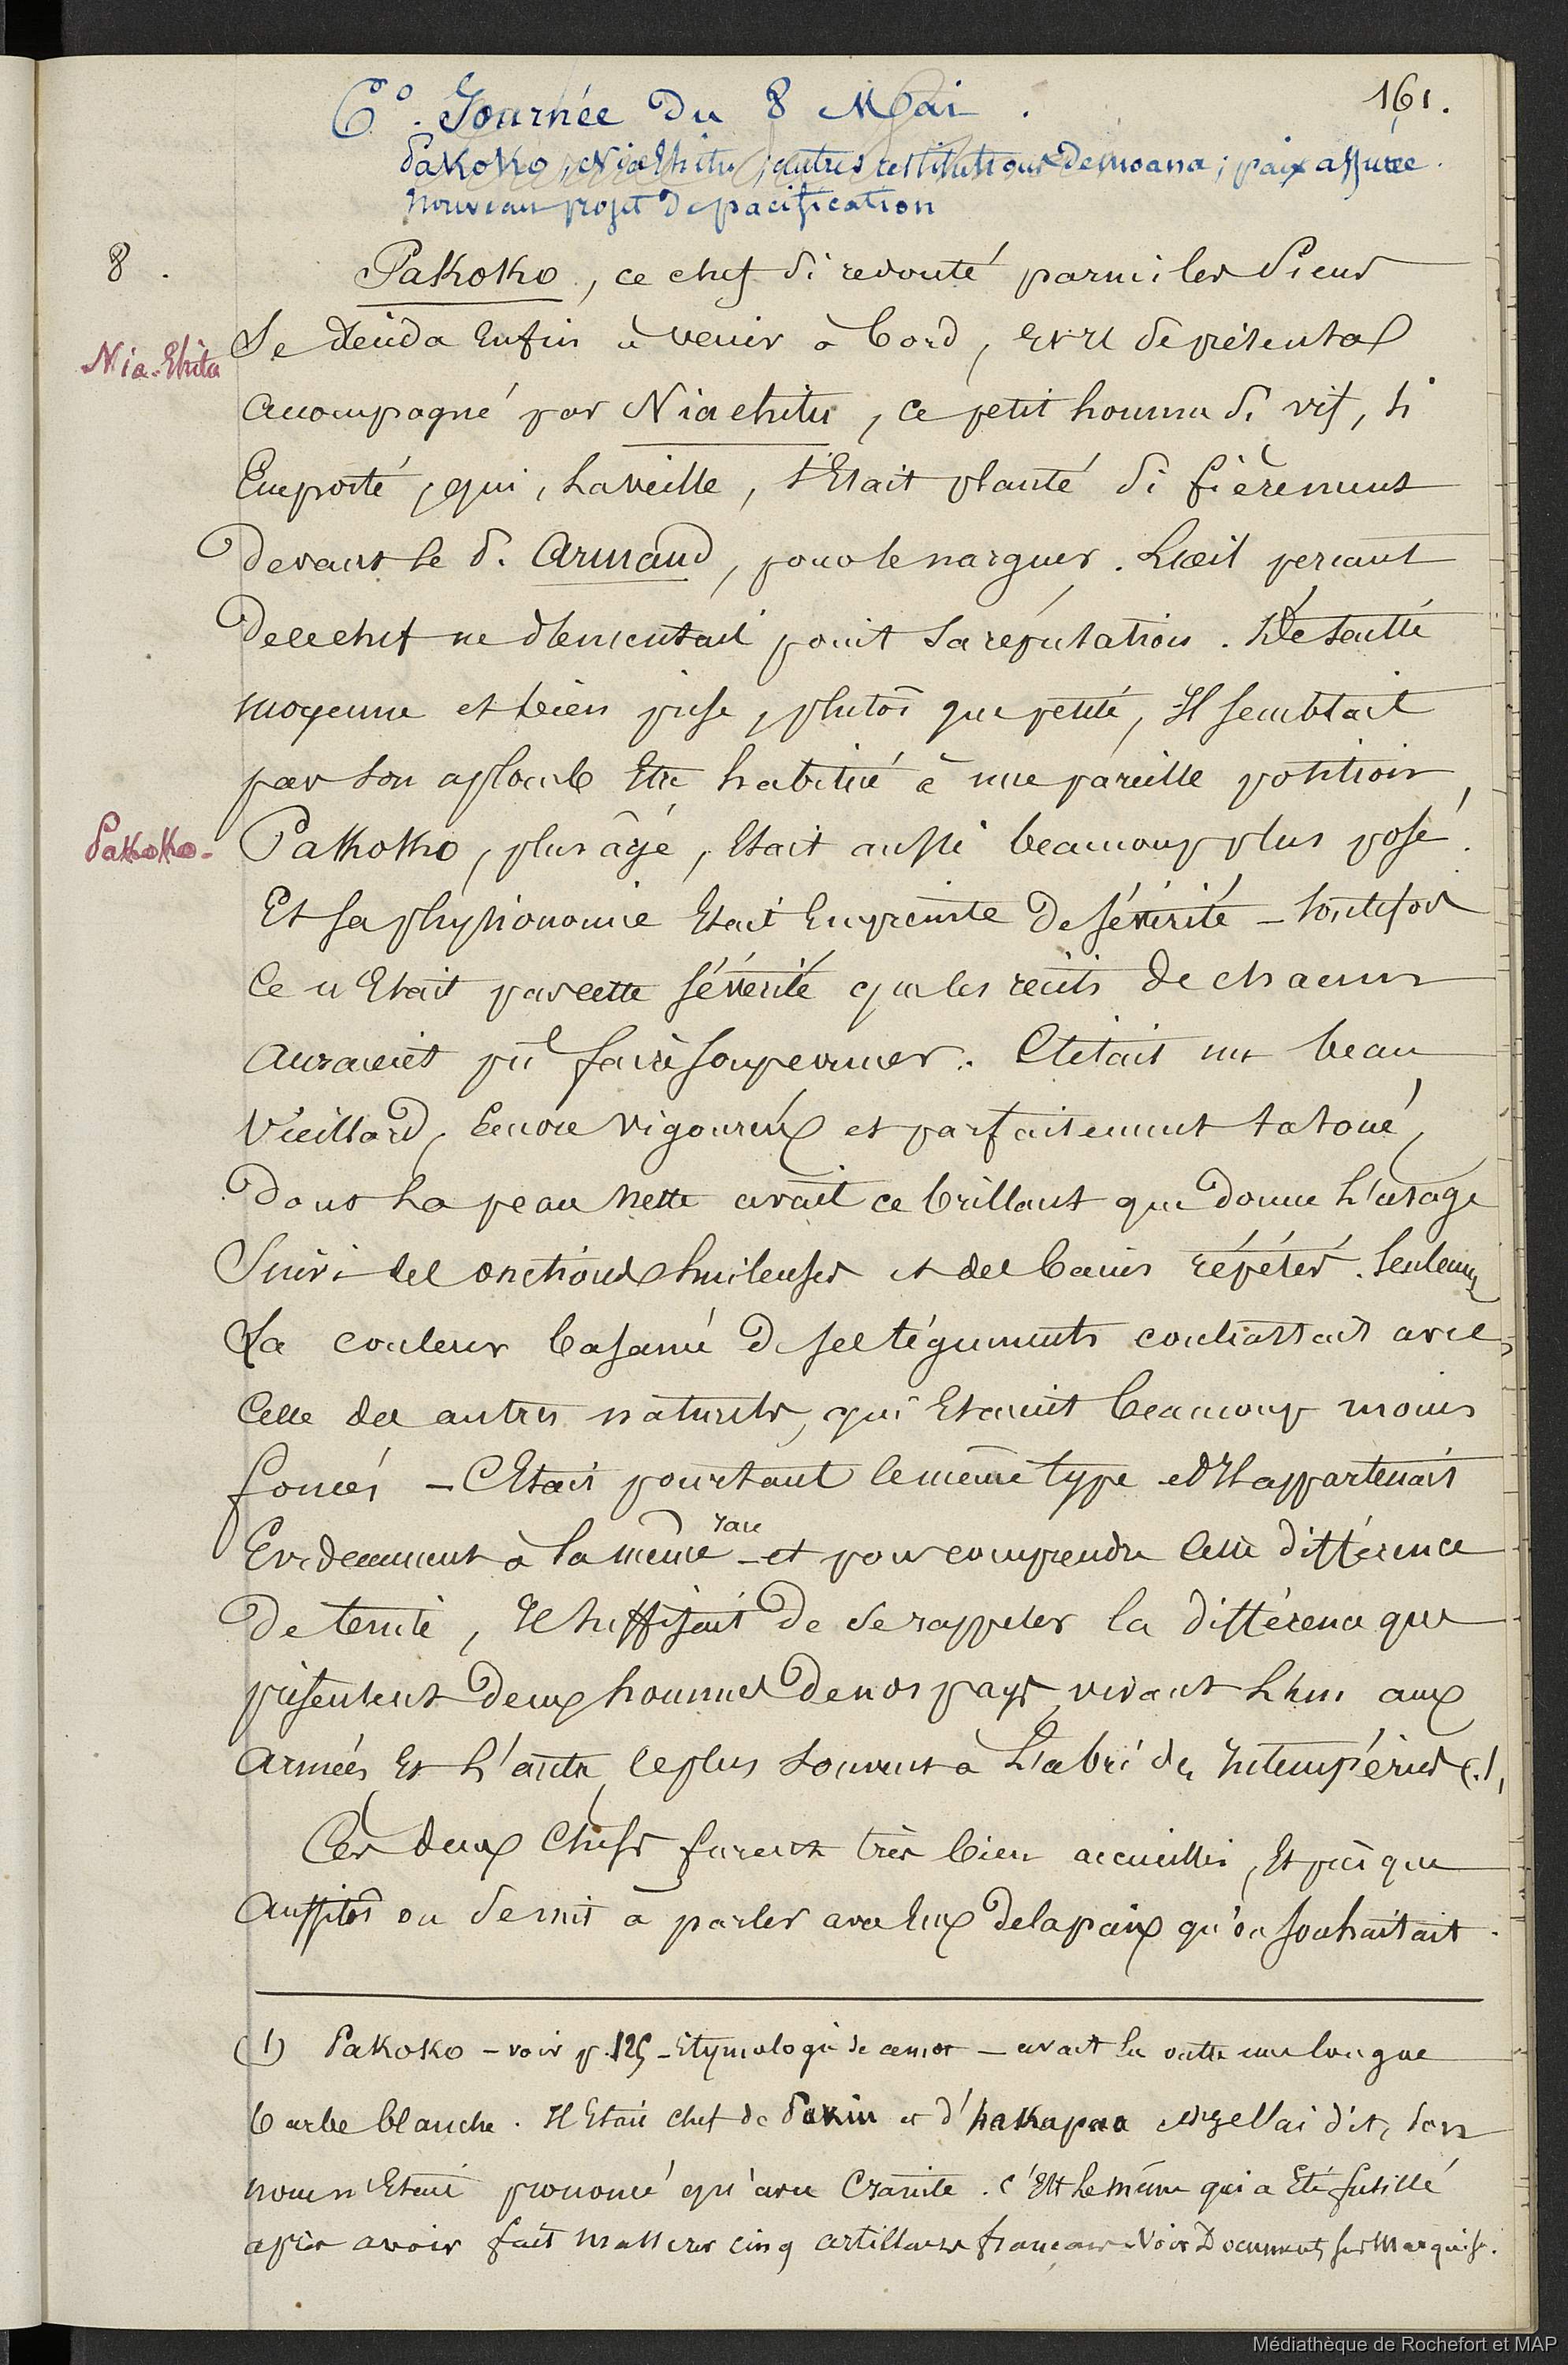 161.
6° Journée du 8 Mai.
Pakoko, Niaehitu, autres restitutions de moana; paix assurée.
Nouveau projet de pacification
8.
Pakoko, ce chef si redouté parmi les siens
Nia-Ehitu
se décida enfin à venir à bord, et il se présenta
accompagné par Niaehitu, ce petit homme si vif, si
emporté, qui, la veille, s'était planté si fièrement
devant le d. Armand, pour le narguer. L'œil perçant
de ce chef ne démentait point sa réputation. De taille
moyenne et bien prise, plutôt que petite, il semblait
par son aplomb être habitué à une pareille position,
Pakoko.
Pakoko, plus âgé, était aussi beaucoup plus posé.
Et sa physionomie était empreinte de sévérité - toutefois
ce n'était pas cette sévérité que les récits de chacun
auraient pu faire soupçonner. C'était un beau
vieillard, encore vigoureux et parfaitement tatoué,
dont la peau nette avait ce brillant que donne l'usage
suivi des onctions huileuses et des bains répétés. Seulement
la couleur basanée de ses téguments contrastait avec
celle des autres naturels, qui étaient beaucoup moins
foncés - C'était pourtant le même type et il appartenait
Evidemment à la même race - et pour comprendre cette différence
de teinte, il suffisait de se rappeler la différence que
présentent deux hommes de nos pays, vivant l'un aux
armées et l'autre, le plus souvent à l'abri des intempéries (1),
Ces deux chefs furent très bien accueillis, et presque
aussitôt on se mit à parler avec eux de la paix qu'on souhaitait.
(1) Pakoko - voir p. 125 - Etymologie de ce mot - avait en outre une longue
barbe blanche. Il était chef de Pakiu et d'hakapaa et je l'ai dit, son
nom n'était prononcé qu'avec crainte. C'est le même qui a été fusillé
après avoir fait massacrer cinq artilleurs français. Voir Documents sur Marquises.
Médiathèque de Rochefort et MAP